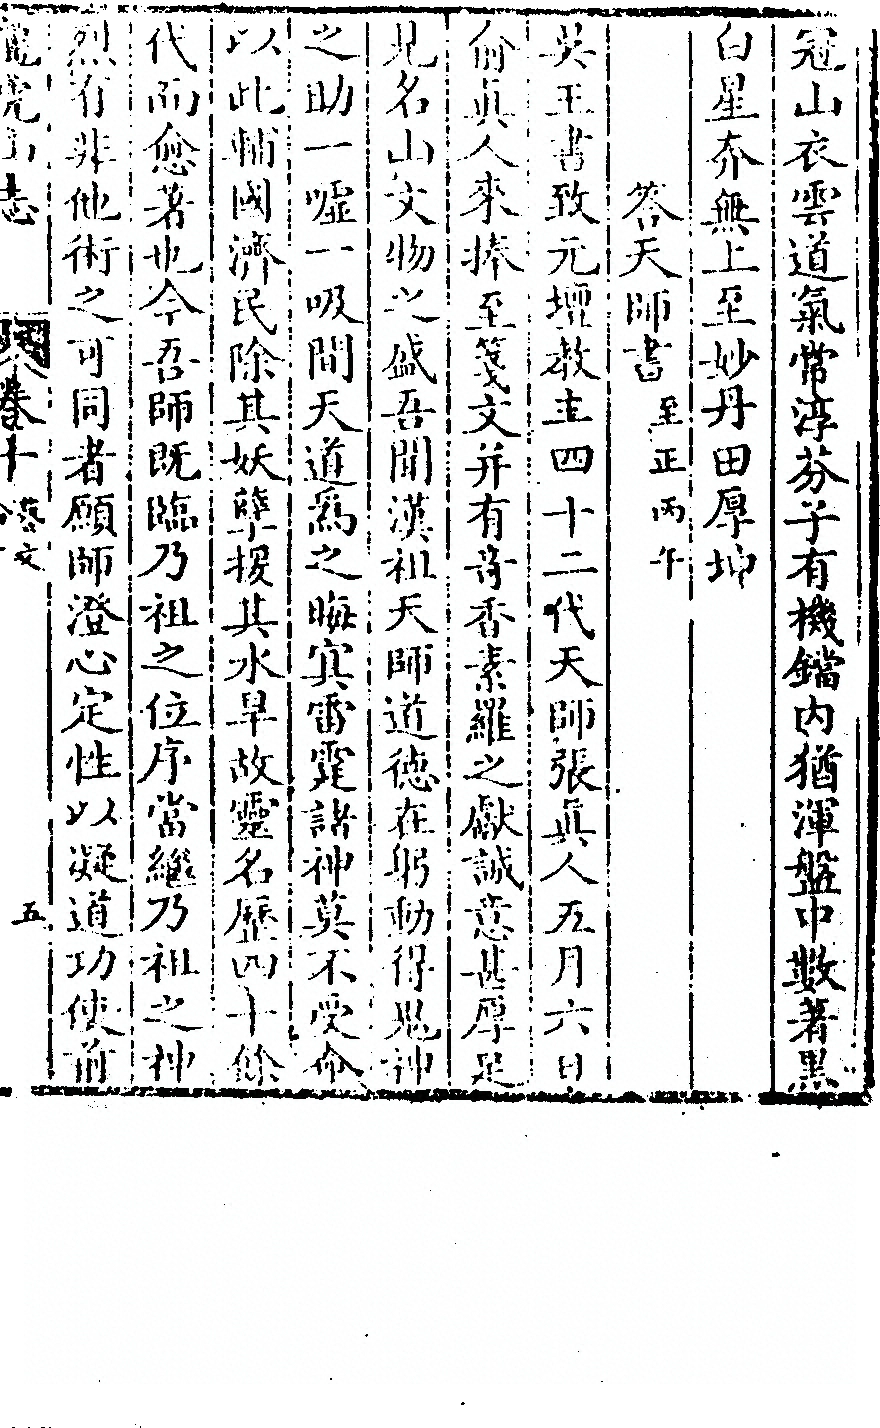 冠山衣雲道氣常淳芬子有機鐺内猶渾盤中數著黑
白星夼無上至妙丹田厚坤
答天師書 至正丙午
吴王書致元壇教主四十二代天師張眞人五月六日
俞眞人來捧至箋文并有奇香素羅之獻誠意甚厚足
見名山文物之盛吾聞漢祖天師道德在躬動得鬼神
之助一噓一吸間天道爲之晦冥雷霆諸神莫不受命
以此輔國濟民除其妖孽援其水旱故靈名歷四十餘
代而愈著也今吾師既臨乃祖之位序當繼乃祖之神
烈有非他術之可同者願師澄心定性以凝道功使前
龍虎山志 卷十 藝文 五